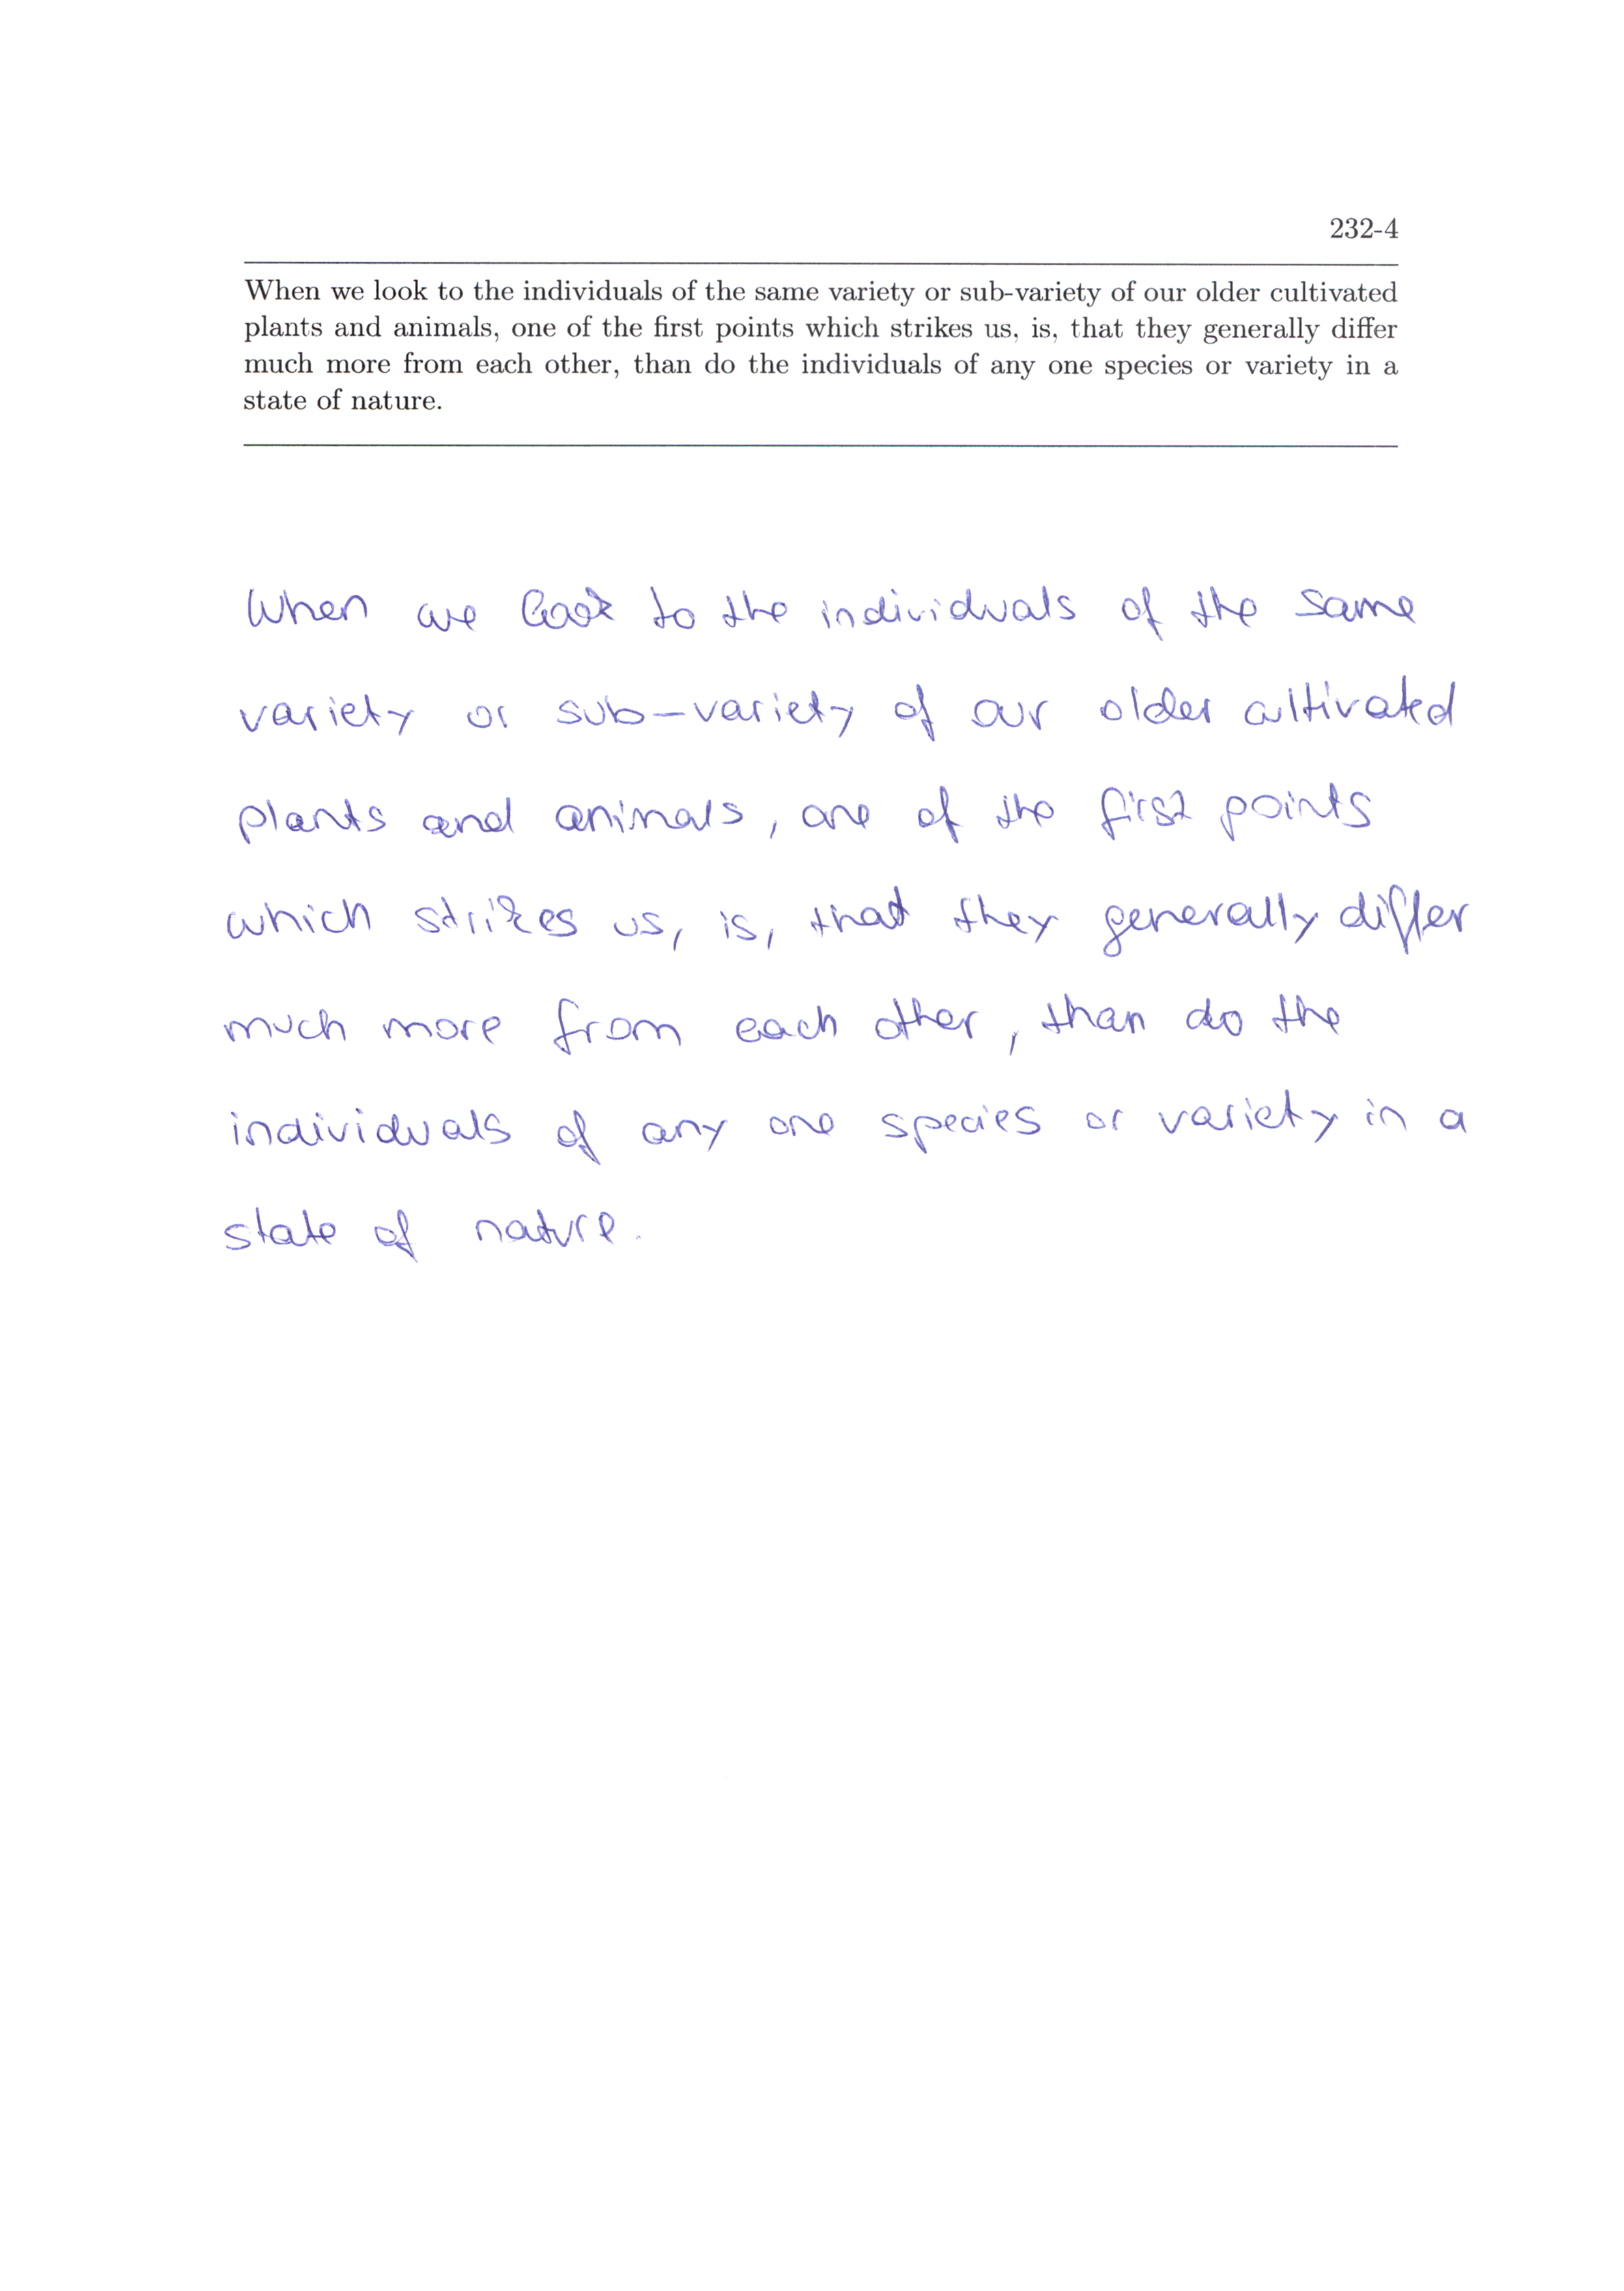 232-4
When we look to the individuals of the same variety or sub-variety of our older cultivated
plants and animals, one of the first points which strikes us, is, that they generally differ
much more from each other, than do the individuals of any one species or variety in a
state of nature.
When we look to the individuals of the same
variety or sub-variety of our older cultivated
plants and animals, one of the first points
which strikes us, is, that they generally differ
much more from each other, than do the
individuals of any one species or variety in a
state of nature.